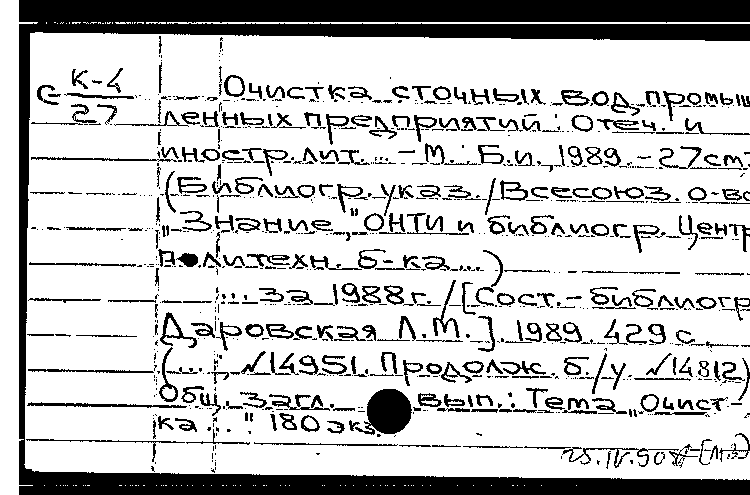 С К-4
27
Очистка сточных вод промыш
ленных предприятий : Отеч. и
иностр. лит. ... - М. : Б.и., 1989. - 27см.
(Библиогр. указ. / Всесоюз. о-во
"Знание," ОНТИ и библиогр. Центр
политехн. б-ка ... )
... за 1988г. / [Сост. - библиогр
Даровская Л.М.]. 1989. 429 с.
(... , №14951. Продолж. б./у. №14812)
Общ. загл. вып.: Тема „Очист-
ка ... " 180 экз.
25.IV.90